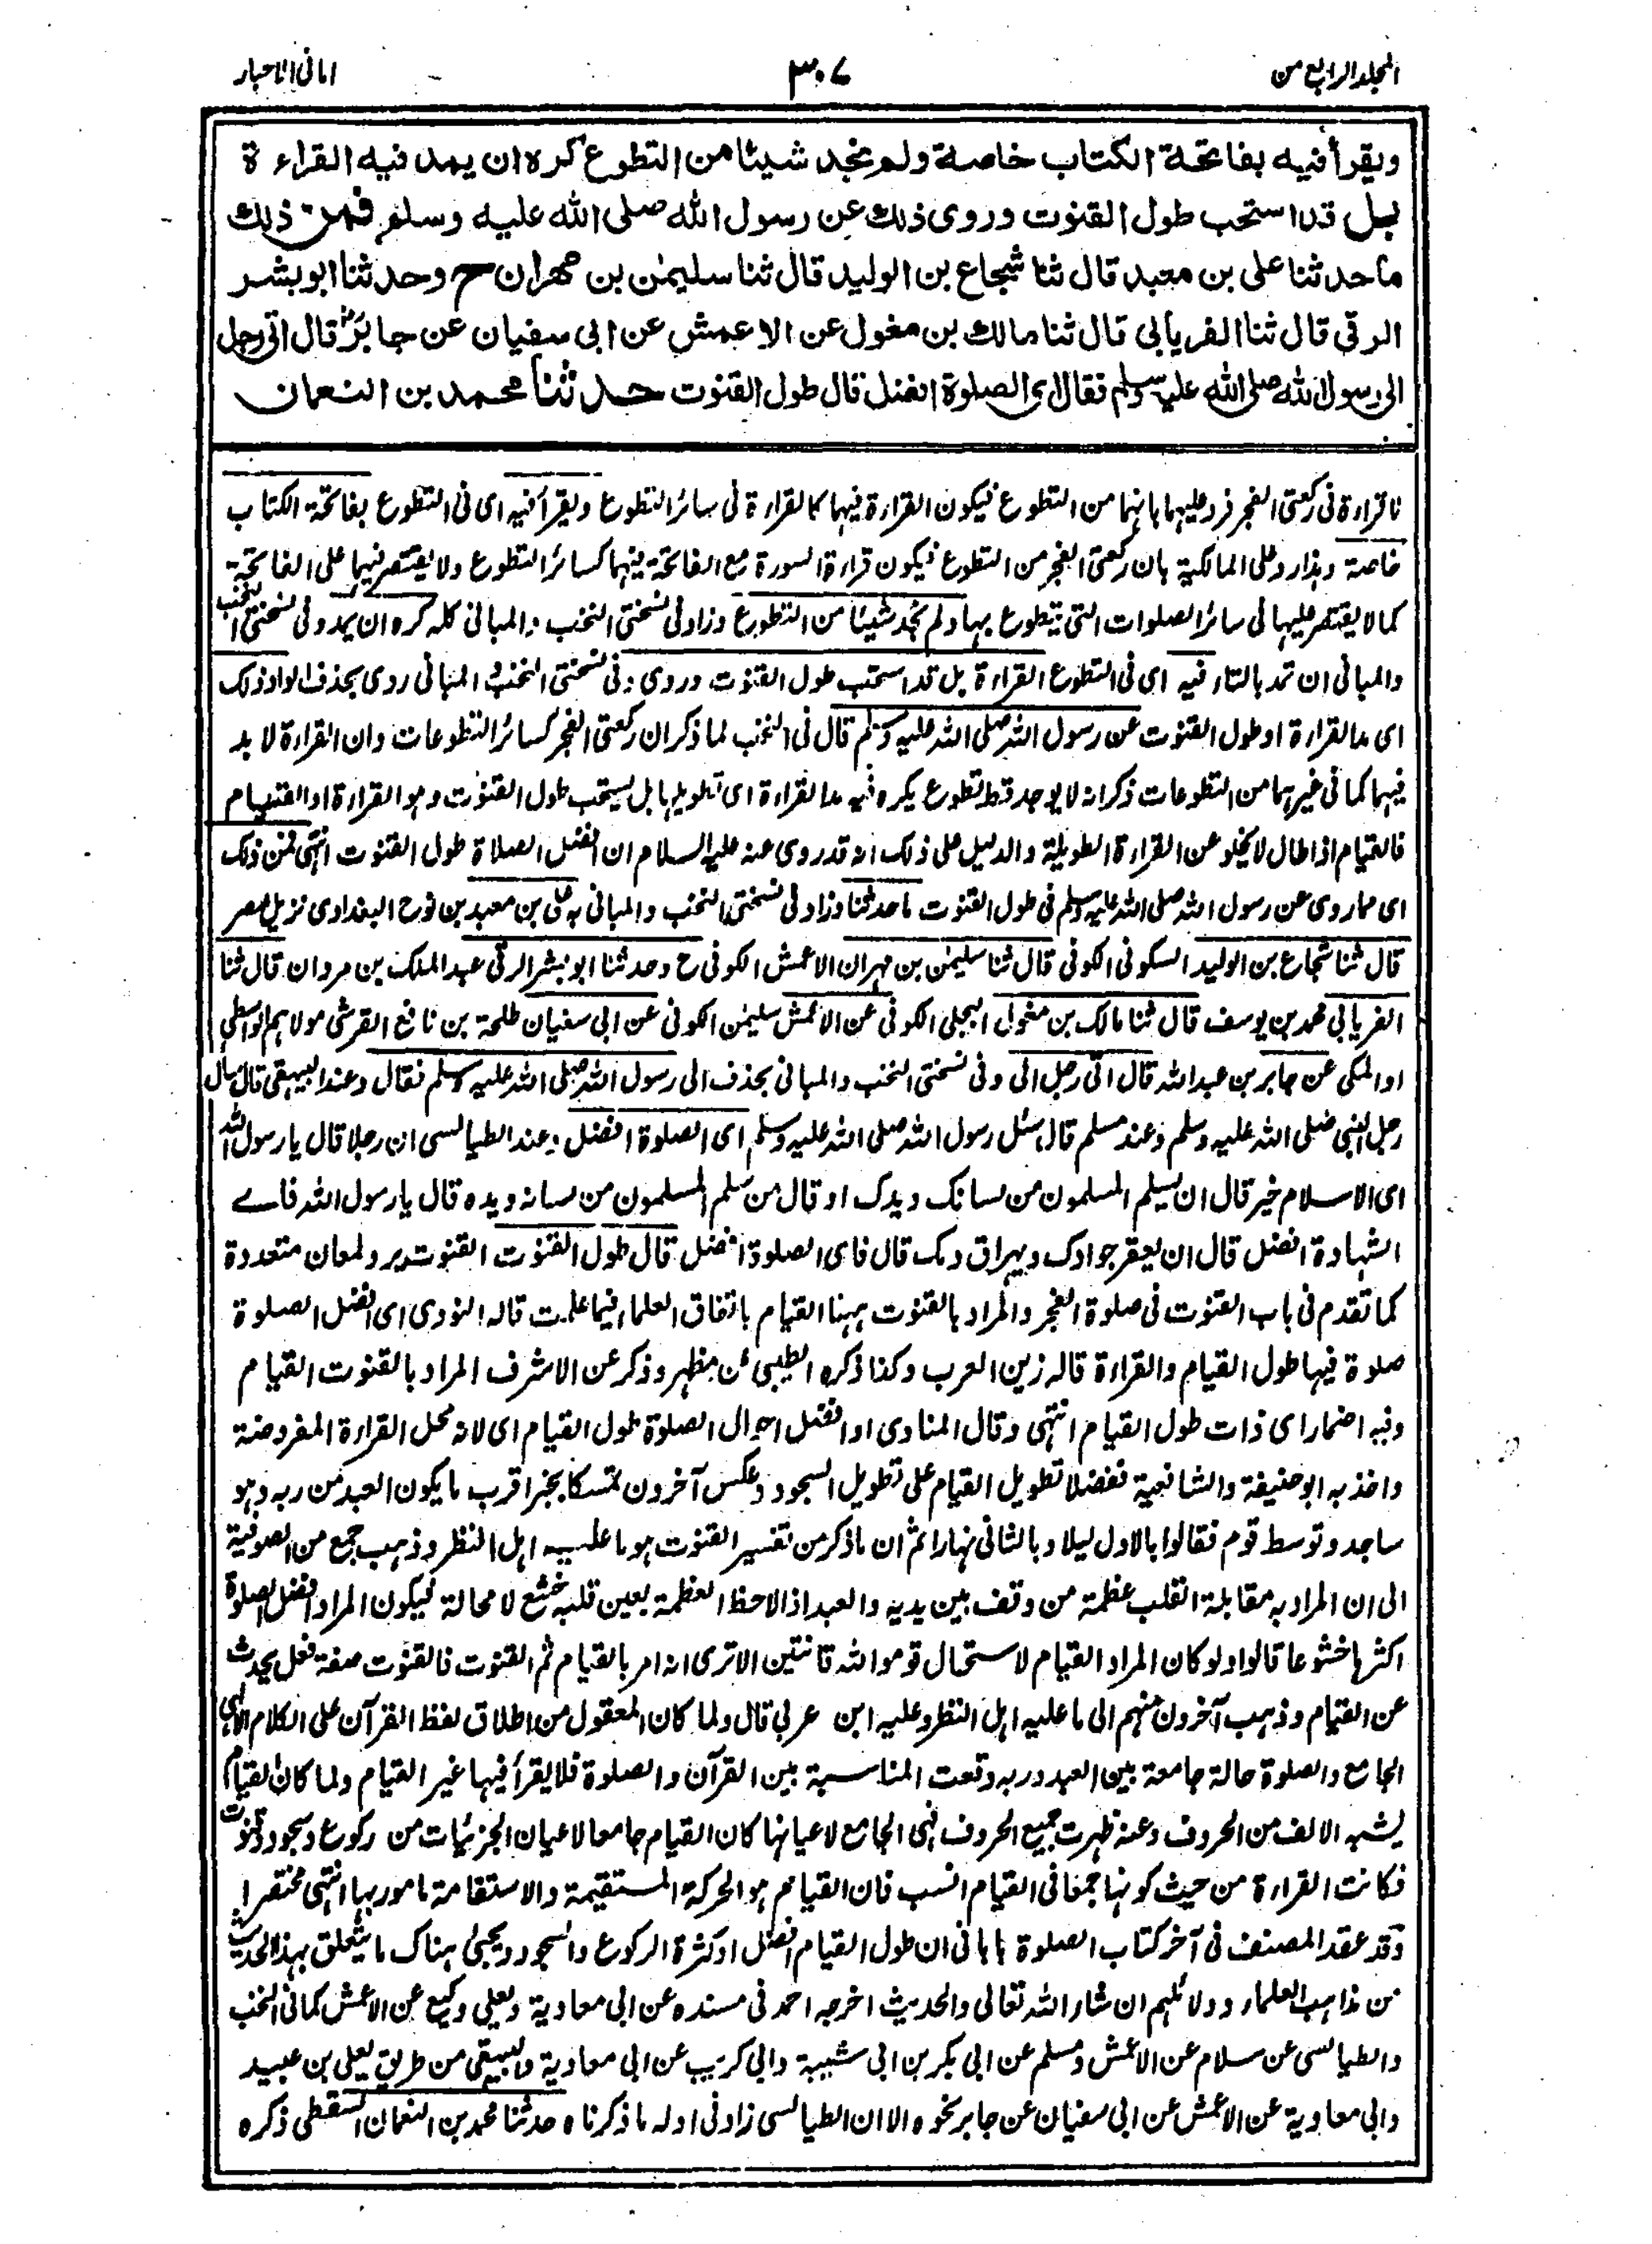 المجلد الرابع من
٣٠٧
امانی الاحبار
ویقرأ فیه بفاتحة الکتاب خاصة ولم نجد شیئا من التطوع کره ان یمد فیه القراءة
بل قد استحب طول القنوت وروی ذلك عن رسول الله صلی الله علیه وسلم فمن ذلك
ما حدثنا علی بن معبد قال ثنا شجاع بن الولید قال ثنا سلیمٰن بن مهران ح وحدثنا ابو بشر
الرقی قال ثنا الفریابی قال ثنا مالك بن مغول عن الاعمش عن ابی سفیان عن جابرؓ قال اتی رجل
الی رسول الله صلی الله علیه وسلم فقال ای الصلوة افضل قال طول القنوت حدثنا محمد بن النعمان
نا قراءة فی رکعتی الفجر فرد علیهما بانهما من التطوع فیکون القراءة فیهما کالقراءة فی سائر التطوع ویقرأ فیه ای فی التطوع بفاتحة الکتاب
خاصة وہذا رد علی المالکیة بان رکعتی الفجر من التطوع فیکون قراءة السورة مع الفاتحة فیهما کسائر التطوع ولا یقتصر فیهما علی الفاتحة
کما لا یقتصر علیها فی سائر الصلوات التی یتطوع بها ولم نجد شیئا من التطوع وزاد فی نسختی النخب والمبانی کله کره ان یمد وفی نسختی النخب
والمبانی ان تمد بالتاء فیه ای فی التطوع القراءة بل قد استحب طول القنوت وروی وفی نسختی النخب والمبانی روی بحذف الواو ذلک
ای مد القراءة او طول القنوت عن رسول الله صلی الله علیه وسلم قال فی النخب لما ذکر ان رکعتی الفجر کسائر التطوعات وان القراءة لا بد
فیهما کما فی غیرہما من التطوعات ذکر انه لا یوجد قط تطوع یکره فیه مد القراءة ای تطویلها بل یستحب طول القنوت وہو القراءة او القیام
فالقیام اذا طال لا یخلو عن القراءة الطویلة والدلیل علی ذلک انه قد روی عنه علیه السلام ان افضل الصلاة طول القنوت انتهی فمن ذلک
ای مما روی عن رسول الله صلی الله علیه وسلم فی طول القنوت ما حدثنا وزاد فی نسختی النخب والمبانی به علی بن معبد بن نوح البغدادی نزیل مصر
قال ثنا شجاع بن الولید السکونی الکوفی قال ثنا سلیمٰن بن مهران الاعمش الکوفی ح وحدثنا ابو بشر الرقی عبد الملک بن مروان قال ثنا
الفریابی محمد بن یوسف قال ثنا مالک بن مغول البجلی الکوفی عن الاعمش سلیمٰن الکوفی عن ابی سفیان طلحة بن نافع القرشی مولاہم الواسطی
او المکی عن جابر بن عبد الله قال اتی رجل الی وفی نسختی النخب والمبانی بحذف الی رسول الله صلی الله علیه وسلم فقال وعند البیهقی قال سأل
رجل النبی صلی الله علیه وسلم وعند مسلم قال سئل رسول الله صلی الله علیه وسلم ای الصلوة افضل وعند الطیالسی ان رجلا قال یا رسول الله
ای الاسلام خیر قال ان یسلم المسلمون من لسانک ویدک او قال من سلم المسلمون من لسانه ویده قال یا رسول الله فای
الشهادة افضل قال ان یعقر جوادک ویهراق دمک قال فای الصلوة افضل قال طول القنوت القنوت یرد لمعان متعددة
کما تقدم فی باب القنوت فی صلوة الفجر والمراد بالقنوت ہهنا القیام باتفاق العلماء فیما علمت قاله النووی ای افضل الصلوة
صلوة فیها طول القیام والقراءة قاله زین العرب وکذا ذکره الطیبی عن مظهر وذکر عن الاشرف المراد بالقنوت القیام
وفیه اضمار ای ذات طول القیام انتهی وقال المناوی او افضل احوال الصلوة طول القیام ای لانه محل القراءة المفروضة
واخذ به ابو حنیفة والشافعیة ففضلا تطویل القیام علی تطویل السجود وعکس آخرون تمسکا بخبر اقرب ما یکون العبد من ربه وہو
ساجد وتوسط قوم فقالوا بالاول لیلا وبالثانی نهارا ثم ان ما ذکر من تفسیر القنوت ہو ما علیه اہل النظر وذہب جمع من الصوفیة
الی ان المراد به مقابلة القلب عظمة من وقف بین یدیه والعبد اذا لاحظ العظمة بعین قلبه خشع لا محالة فیکون المراد افضل الصلوة
اکثرہا خشوعا قالوا ولو کان المراد القیام لاستحال قوموا لله قانتین الا تری انه امر بالقیام ثم القنوت فالقنوت صفة فعل یحدث
عن القیام وذہب آخرون منهم الی ما علیه اہل النظر وعلیه ابن عربی قال ولما کان المعقول من اطلاق لفظ القرآن علی الکلام الالٰهی
الجامع والصلوة حالة جامعة بین العبد وربه وقعت المناسبة بین القرآن والصلوة فلا یقرأ فیها غیر القیام ولما کان القیام
یشبه الالف من الحروف وعنه ظهرت جمیع الحروف فهی الجامع لاعیانها کان القیام جامعا لاعیان الجزئیات من رکوع وسجود وقنوت
فکانت القراءة من حیث کونها جمعا فی القیام انسب فان القیام ہو الحرکة المستقیمة والاستقامة مامور بها انتهی مختصرا
وقد عقد المصنف فی آخر کتاب الصلوة بابا فی ان طول القیام افضل او کثرة الرکوع والسجود ویجئ ہناک ما یتعلق بهذا الحدیث
من مذاہب العلماء ودلائلهم ان شاء الله تعالی والحدیث اخرجه احمد فی مسنده عن ابی معاویة ویعلی ووکیع عن الاعمش کما فی النخب
والطیالسی عن سلام عن الاعمش ومسلم عن ابی بکر بن ابی شیبة وابی کریب عن ابی معاویة والبیهقی من طریق یعلی بن عبید
وابی معاویة عن الاعمش عن ابی سفیان عن جابر نحوه الا ان الطیالسی زاد فی اوله ما ذکرناه حدثنا محمد بن النعمان السقطی ذکره